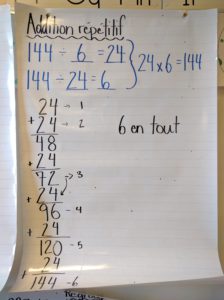 Addition répétitif
144 ÷ 6 = 24
144 ÷ 24 = 6
24 x 6 = 144
24 → 1
+ 24 → 2
48
+ 24
72 → 3
+ 24
96 - 4
+ 24
120 - 5
+ 24
144 - 6
6 en tout